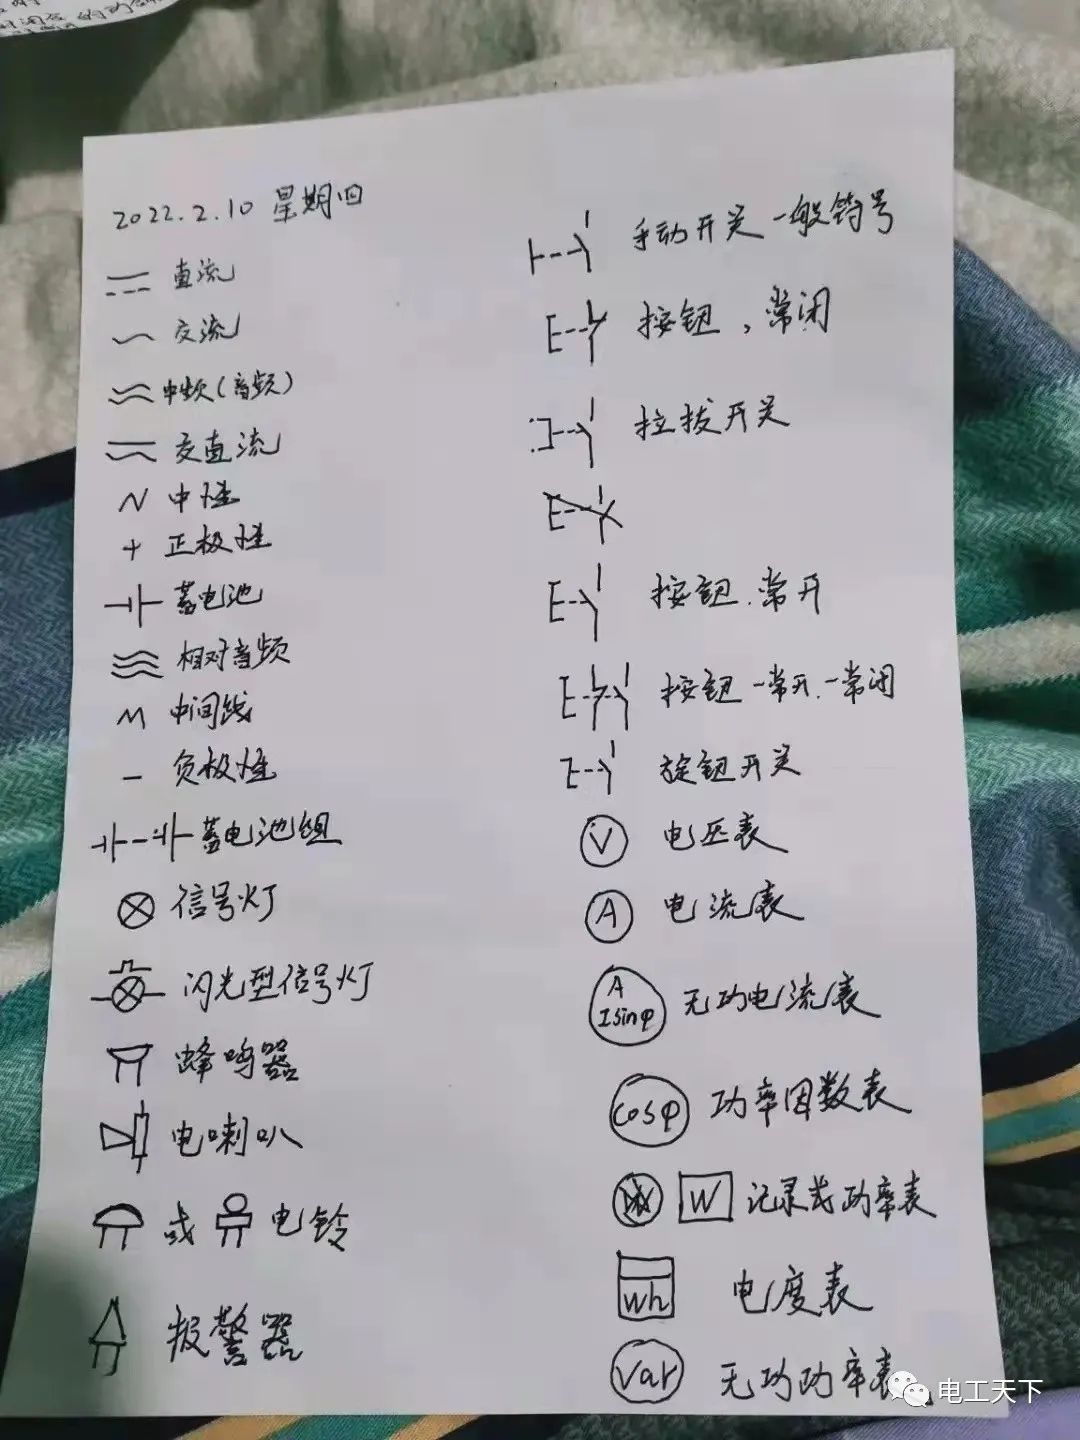 2022.2.10 星期四
直流
交流
中频(音频)
交直流
N 中性
+ 正极性
蓄电池
相对音频
M 中间线
- 负极性
蓄电池组
信号灯
闪光型信号灯
蜂鸣器
电喇叭
或 电铃
报警器
手动开关一般符号
按钮,常闭
拉拔开关
按钮.常开
按钮一常开.一常闭
旋钮开关
V 电压表
A 电流表
A
Isinφ 无功电流表
cosφ 功率因数表
W 记录式功率表
Wh 电度表
Var 无功功率表
电工天下